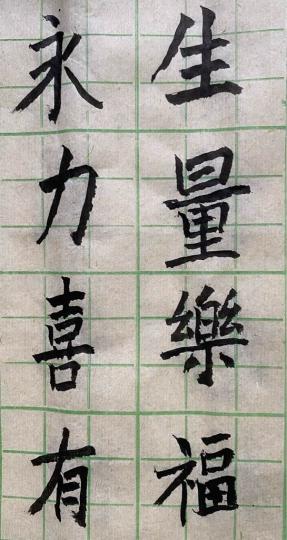 永生
力量
喜樂
有福